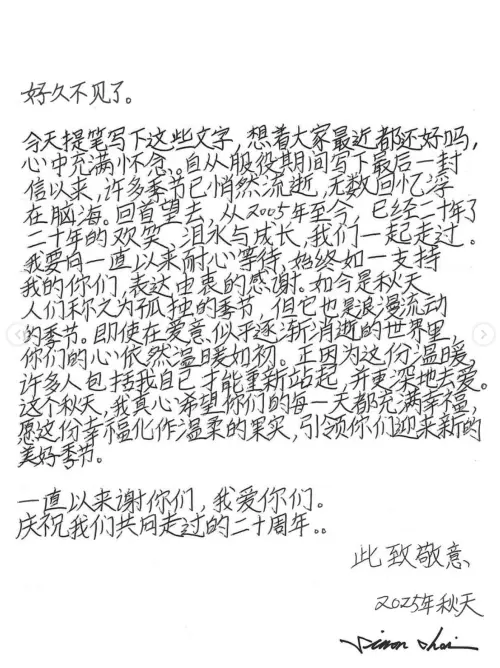 好久不见了。
今天提笔写下这些文字，想着大家最近都还好吗，
心中充满怀念。。自从服役期间写下最后一封
信以来，许多季节已悄然流逝，无数回忆浮
在脑海。回首望去，从2005年至今，已经二十年了
二十年的欢笑、泪水与成长，我们一起走过。
我要向一直以来耐心等待，始终如一支持
我的你们，表达由衷的感谢。如今是秋天
人们称之为孤独的季节，但它也是浪漫流动
的季节。即使在爱意似乎逐渐消逝的世界里，
你们的心依然温暖如初。正因为这份温暖，
许多人包括我自己才能重新站起，并更深地去爱。
这个秋天，我真心希望你们的每一天都充满幸福，
愿这份幸福化作温柔的果实，引领你们迎来新的
美好季节。
一直以来谢你们，我爱你们。
庆祝我们共同走过的二十周年。。
此致敬意
2025年秋天